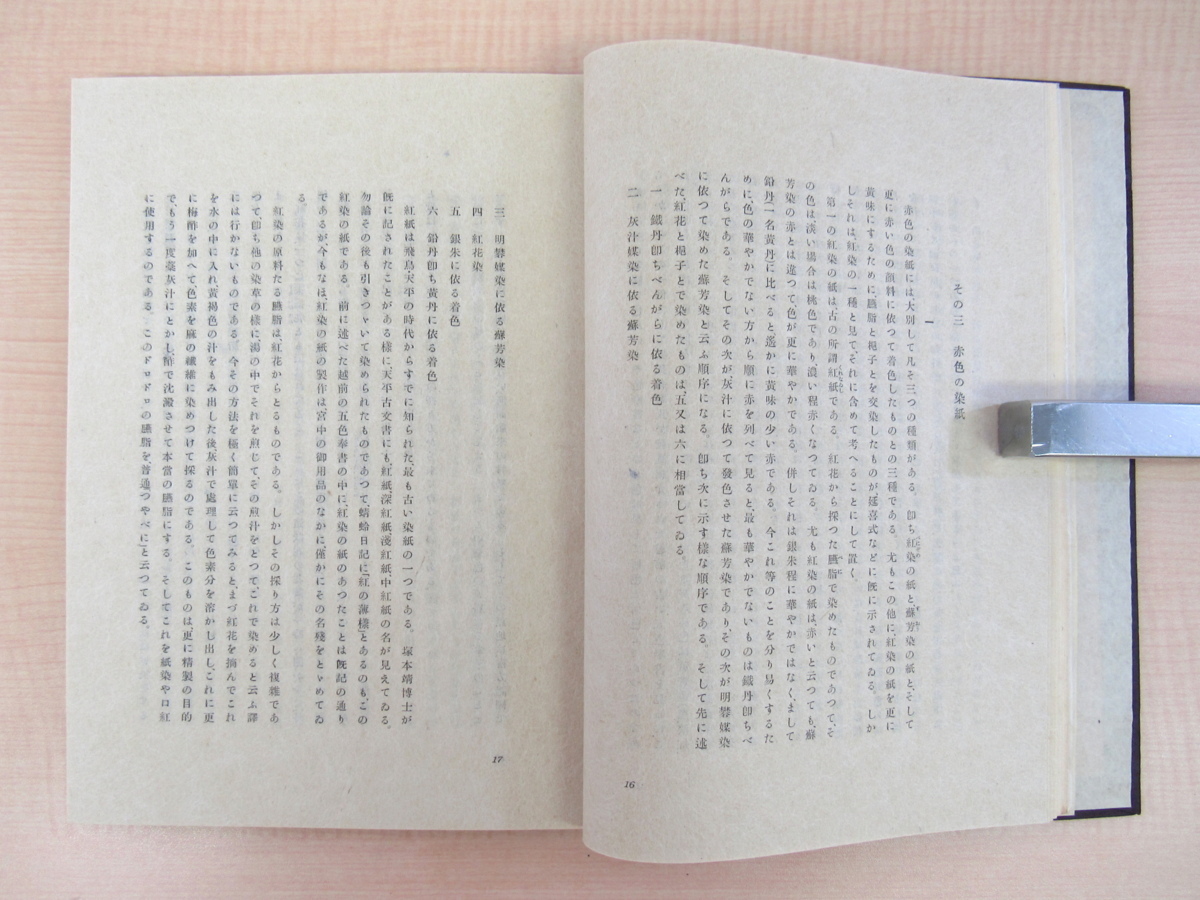 その三　赤色の染紙
一
赤色の染紙には大別して凡そ三つの種類がある。卽ち紅染の紙と、蘇芳染の紙と、そして
更に赤い色の顔料に依つて着色したものとの三種である。尤もこの他に、紅染の紙を更に
黄味にするために臙脂と梔子とを交染したものが、延喜式などに旣に示されてゐる。しか
しそれは紅染の一種と見て、それに含めて考へることにして置く。
第一の紅染の紙は古の所謂紅紙である。紅花から採つた臙脂で染めたものであつて、そ
の色は、淡い場合は桃色であり、濃い程赤くなつてゐる。尤も紅染の紙は、赤いと云つても、蘇
芳染の赤とは違つて、色が更に華やかである。併しそれは銀朱程に華やかではなく、まして
鉛丹（一名黄丹）に比べると遙かに黄味の少い赤である。今これ等のことを分り易くするた
めに、色の華やかでない方から順に赤を列べて見ると、最も華やかでないものは鐵丹卽ちべ
んがらである。そしてその次が、灰汁に依つて發色させた蘇芳染であり、その次が明礬媒染
に依つて染めた蘇芳染と云ふ順序になる。卽ち次に示す様な順序である。そして先に述
べた、紅花と梔子とで染めたものは、五又は六に相當してゐる。
一　鐵丹卽ちべんがらに依る着色
二　灰汁媒染に依る蘇芳染
16
三　明礬媒染に依る蘇芳染
四　紅花染
五　銀朱に依る着色
六　鉛丹卽ち黄丹に依る着色
紅紙は飛鳥天平の時代からすでに知られた、最も古い染紙の一つである。塚本靖博士が
旣に記されたことがある様に、天平古文書にも、紅紙深紅紙淺紅紙中紅紙の名が見えてゐる。
勿論その後も引きつゞいて染められたものであつて、蜻蛉日記に「紅の薄様」とあるのも、この
紅染の紙である。前に述べた越前の五色奉書の中に、紅染の紙のあつたことは旣記の通り
であるが、今もなほ、紅染の紙の製作は宮中の御用品のなかに、僅かにその名殘をとゞめてゐ
る。
紅染の原料たる臙脂は、紅花からとるものである。しかしその採り方は少しく複雜であ
つて、卽ち他の染草の様に湯の中でそれを煎じてその煎汁をとつて、これで染めると云ふ譯
には行かないものである。今その方法を極く簡單に云つてみると、まづ紅花を摘んでこれ
を水の中に入れ、黄褐色の汁をもみ出した後、灰汁で處理して色素分を溶かし出し、これに更
に梅酢を加へて色素を麻の纖維に染めつけて採るのである。このものは、更に精製の目的
で、もう一度藁灰汁にとかし、酢で沈澱させて本當の臙脂にする。そしてこれを紙染や口紅
に使用するのである。このドロドロの臙脂を普通「つやべに」と云つてゐる。
17